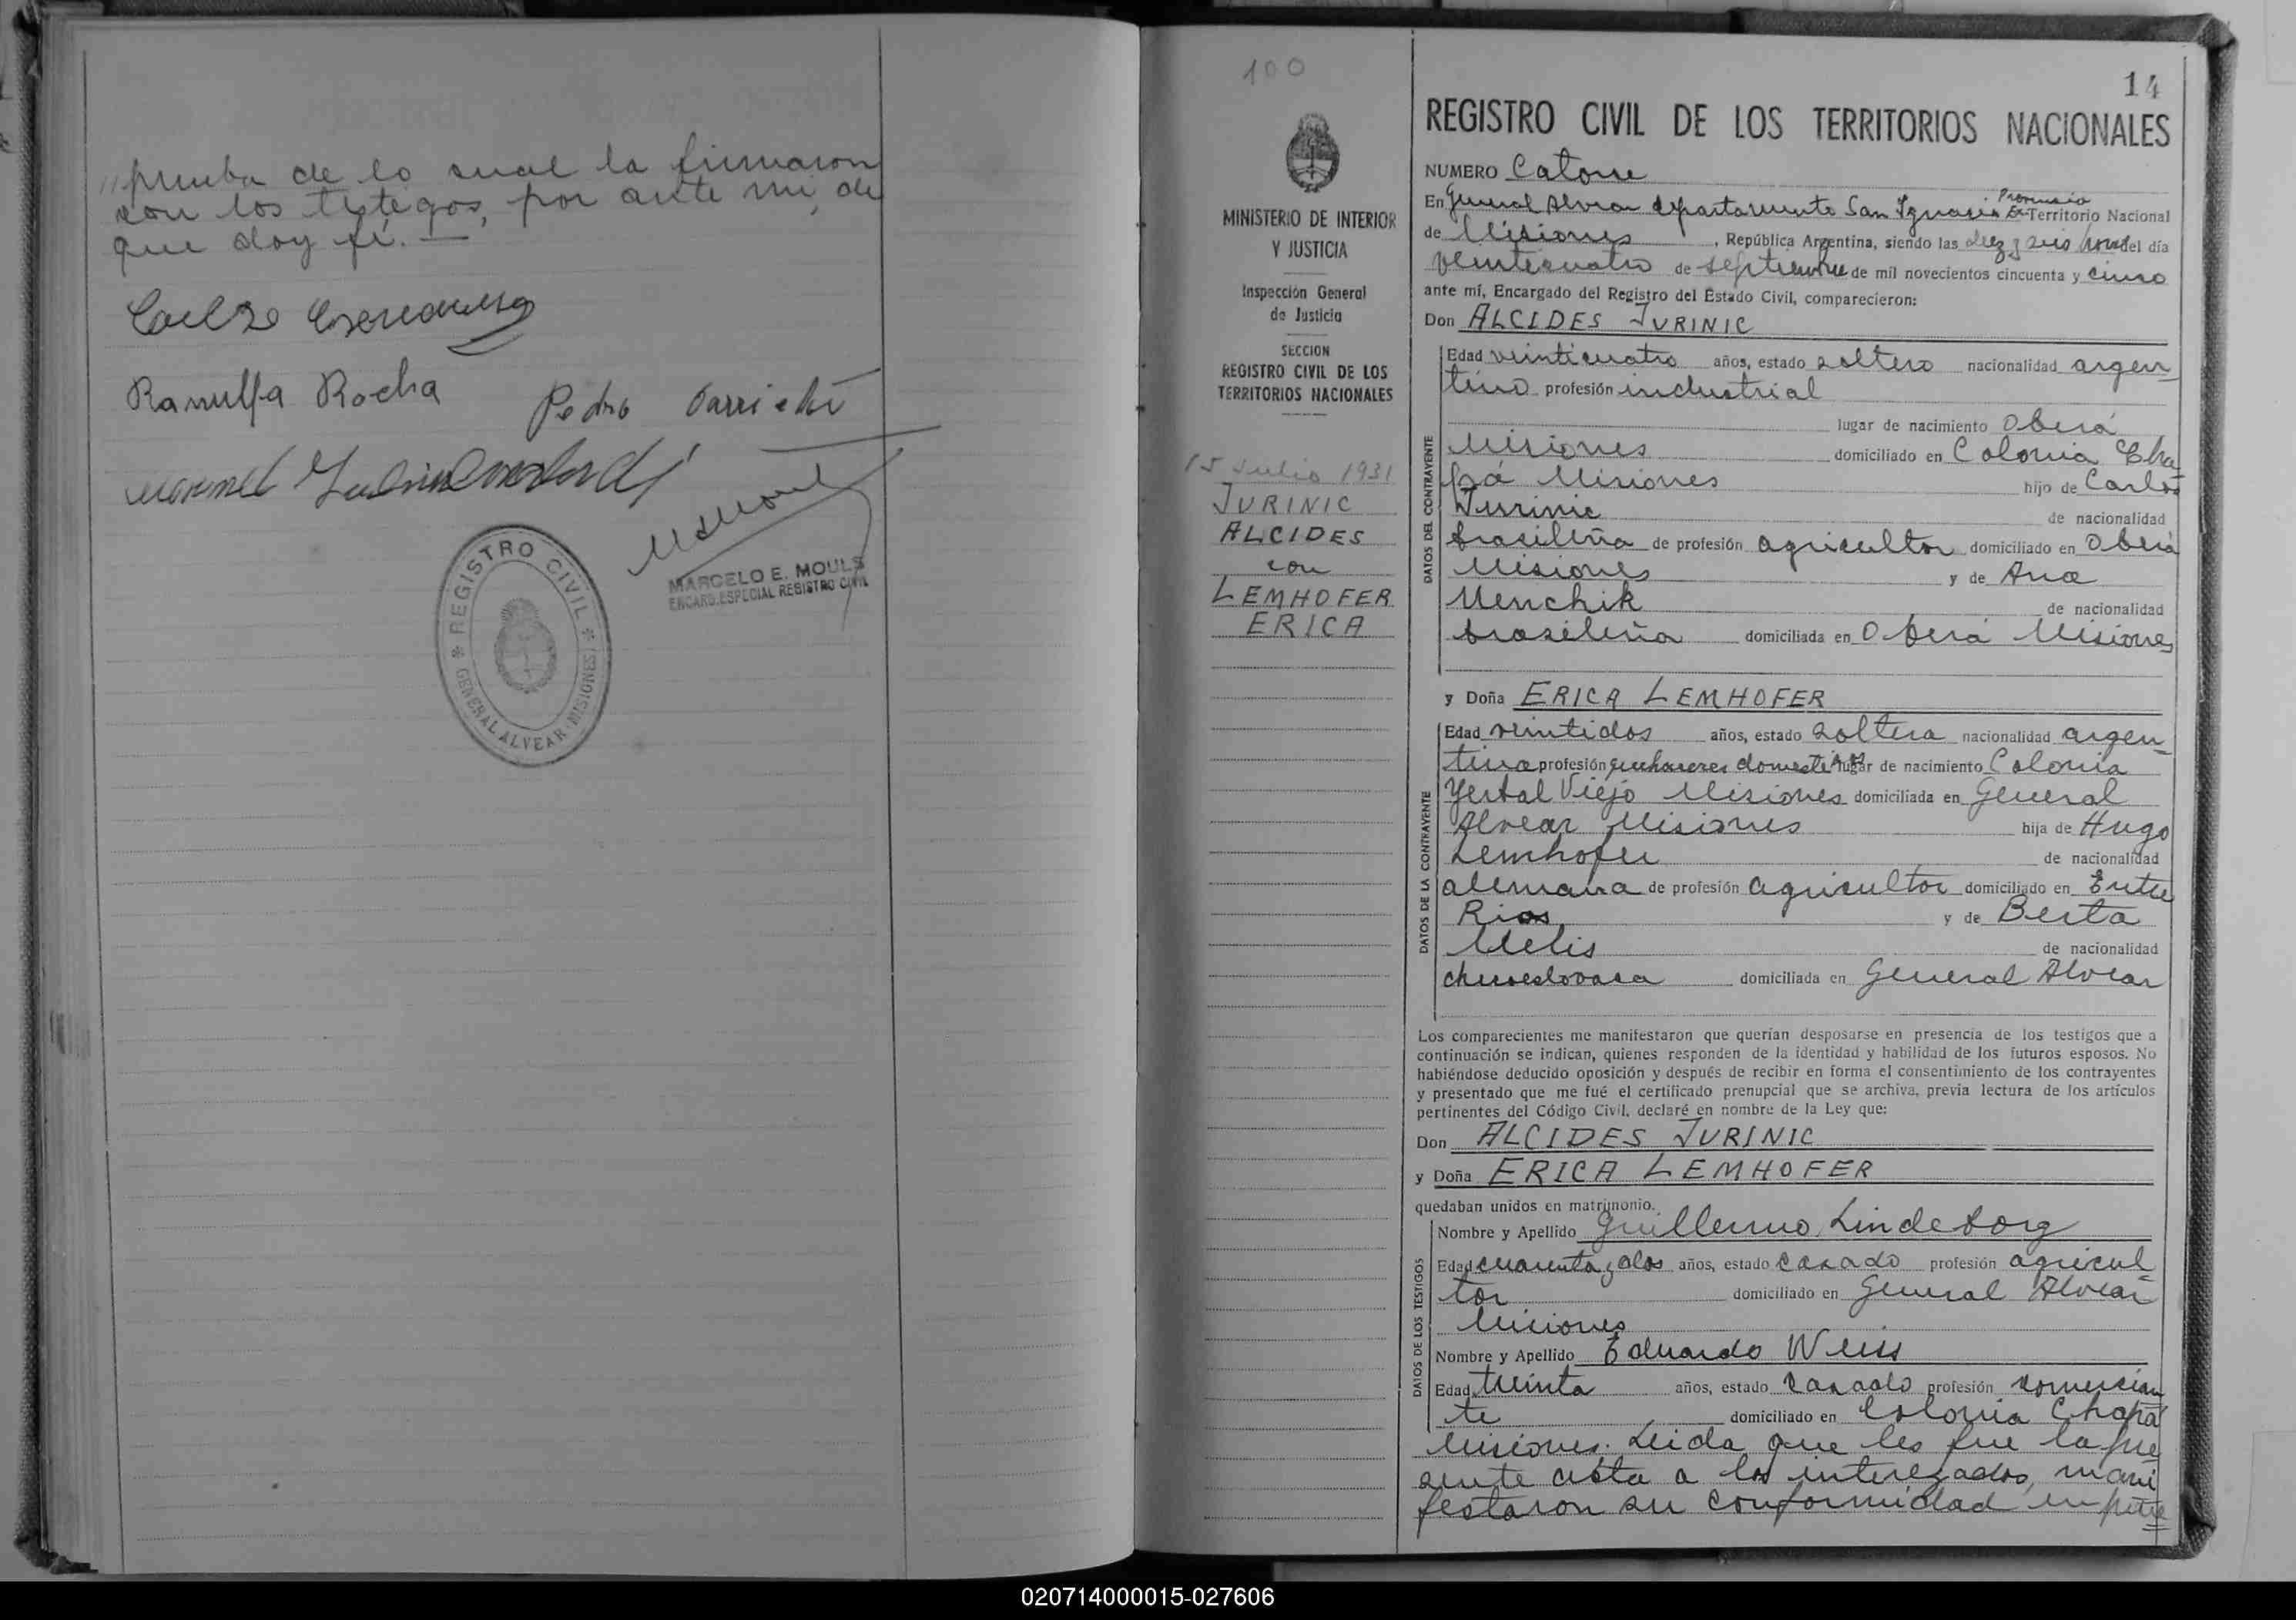 prueba de lo cual la firmaron
con los testigos, por ante mi, de
que doy fé. —
Ranulfa Rocha
Pedro
MARCELO E. MOULS
ENCARG. ESPECIAL REGISTRO CIVIL
* REGISTRO CIVIL *
GENERAL ALVEAR - (MISIONES)
100
MINISTERIO DE INTERIOR
Y JUSTICIA
Inspección General
de Justicia
SECCION
REGISTRO CIVIL DE LOS
TERRITORIOS NACIONALES
15 Julio 1931
JURINIC
ALCIDES
con
LEMHOFER
ERICA
14
REGISTRO CIVIL DE LOS TERRITORIOS NACIONALES
NUMERO Catorce
En General Alvear departamento San Ignacio Provincia Ex Territorio Nacional
de Misiones, República Argentina, siendo las diez y seis horas del día
veinticuatro de septiembre de mil novecientos cincuenta y cinco
ante mí, Encargado del Registro del Estado Civil, comparecieron:
Don ALCIDES JURINIC
DATOS DEL CONTRAYENTE
Edad veinticuatro años, estado soltero nacionalidad argen-
tino profesión industrial
lugar de nacimiento Oberá
Misiones domiciliado en Colonia Cha-
pá Misiones hijo de Carlos
Jurinic de nacionalidad
brasileña de profesión agricultor domiciliado en Oberá
Misiones y de Ana
Menchik de nacionalidad
brasileña domiciliada en Oberá Misiones
y Doña ERICA LEMHOFER
DATOS DE LA CONTRAYENTE
Edad veintidos años, estado soltera nacionalidad argen-
tina profesión quehaceres domesticos lugar de nacimiento Colonia
Yerbal Viejo Misiones domiciliada en General
Alvear Misiones hija de Hugo
Lemhofer de nacionalidad
alemana de profesión agricultor domiciliado en Entre
Rios y de Berta
Melis de nacionalidad
checoeslovaca domiciliada en General Alvear
Los comparecientes me manifestaron que querían desposarse en presencia de los testigos que a
continuación se indican, quienes responden de la identidad y habilidad de los futuros esposos. No
habiéndose deducido oposición y después de recibir en forma el consentimiento de los contrayentes
y presentado que me fué el certificado prenupcial que se archiva, previa lectura de los artículos
pertinentes del Código Civil, declaré en nombre de la Ley que:
Don ALCIDES JURINIC
y Doña ERICA LEMHOFER
quedaban unidos en matrimonio.
DATOS DE LOS TESTIGOS
Nombre y Apellido Guillermo Lindeborg
Edad cuarenta y dos años, estado casado profesión agricul-
tor domiciliado en General Alvear
Misiones
Nombre y Apellido Eduardo Weiss
Edad treinta años, estado casado profesión comercian-
te domiciliado en Colonia Chapá
Misiones. Leida que les fue la pre-
sente acta a los interezados, mani-
festaron su conformidad en
020714000015-027606